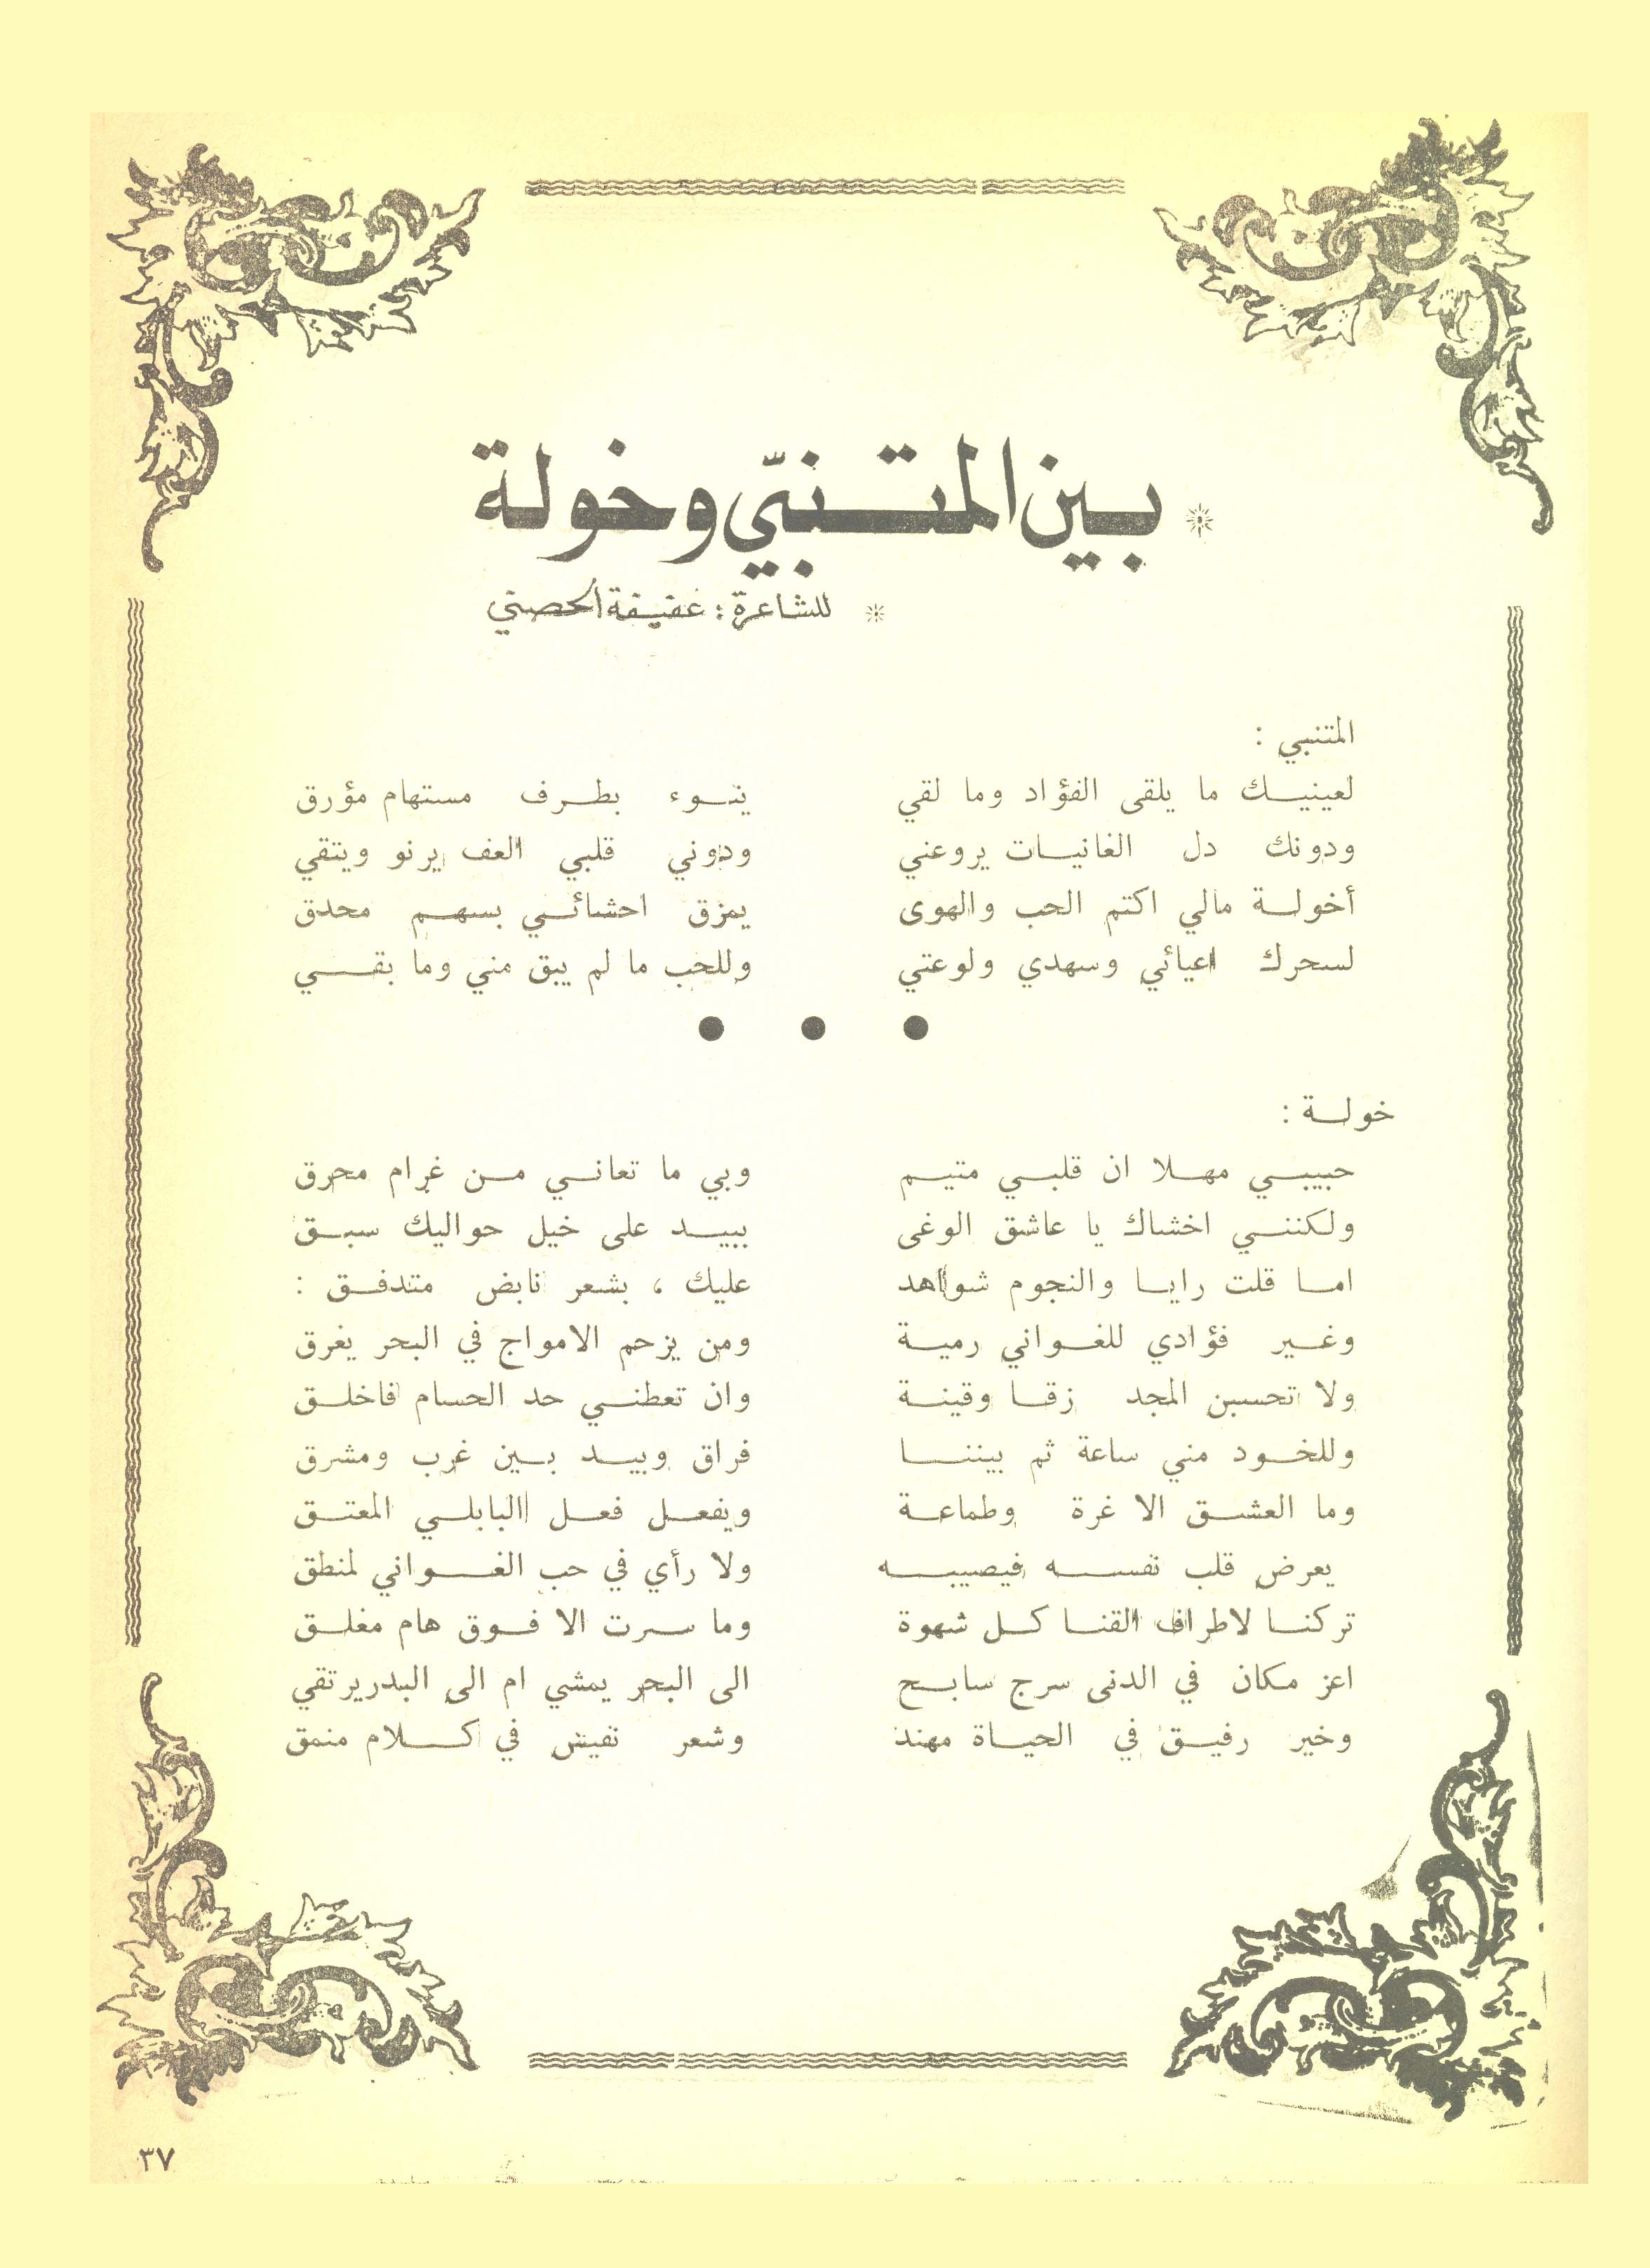 * بين المتنبّي وخولة
* للشاعرة : عفيفة الحصني
المتنبي :
لعينيك ما يلقى الفؤاد وما لقي ينوء بطرف مستهام مؤرق
ودونك دل الغانيات يروعني ودوني قلبي العف يرنو ويتقي
أخولة مالي اكتم الحب والهوى يمزق احشائي بسهم محدق
لسحرك اعيائي وسهدي ولوعتي وللحب ما لم يبق مني وما بقي
● ● ●
خولة :
حبيبي مهلا ان قلبي متيم وبي ما تعاني من غرام محرق
ولكنني اخشاك يا عاشق الوغى ببيد على خيل حواليك سبق
اما قلت رايا والنجوم شواهد عليك ، بشعر نابض متدفق :
وغير فؤادي للغواني رمية ومن يزحم الامواج في البحر يغرق
ولا تحسبن المجد زقا وقينة وان تعطني حد الحسام فاخلق
وللخود مني ساعة ثم بيننا فراق وبيد بين غرب ومشرق
وما العشق الا غرة وطماعة ويفعل فعل البابلي المعتق
يعرض قلب نفسه فيصيبه ولا رأي في حب الغواني لمنطق
تركنا لاطراف القنا كل شهوة وما سرت الا فوق هام مغلق
اعز مكان في الدنى سرج سابح الى البحر يمشي ام الى البدر يرتقي
وخير رفيق في الحياة مهند وشعر نفيس في كلام منمق
٣٧